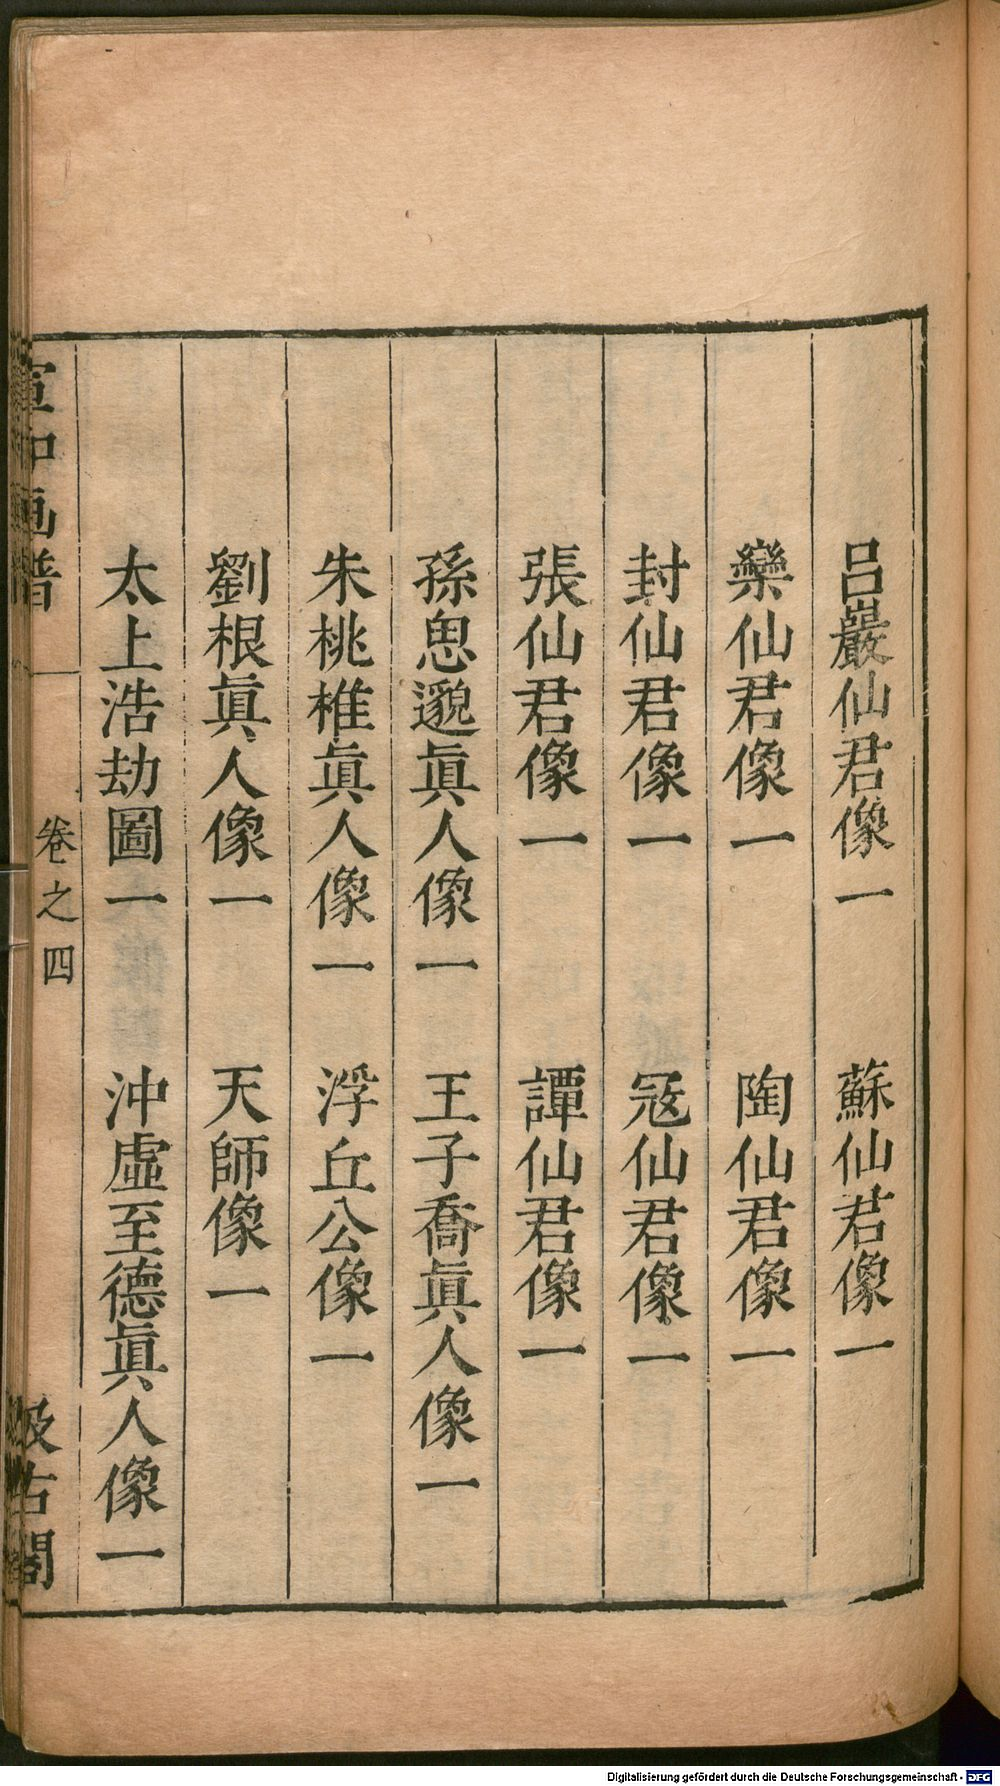 呂巖仙君像一　蘇仙君像一
欒仙君像一　陶仙君像一
封仙君像一　冦仙君像一
張仙君像一　譚仙君像一
孫思邈眞人像一　王子喬眞人像一
朱桃椎眞人像一　浮丘公像一
劉根眞人像一　天師像一
太上浩劫圖一　沖虛至德眞人像一
宣和画譜　卷之四　汲古閣
Digitalisierung gefördert durch die Deutsche Forschungsgemeinschaft - DFG